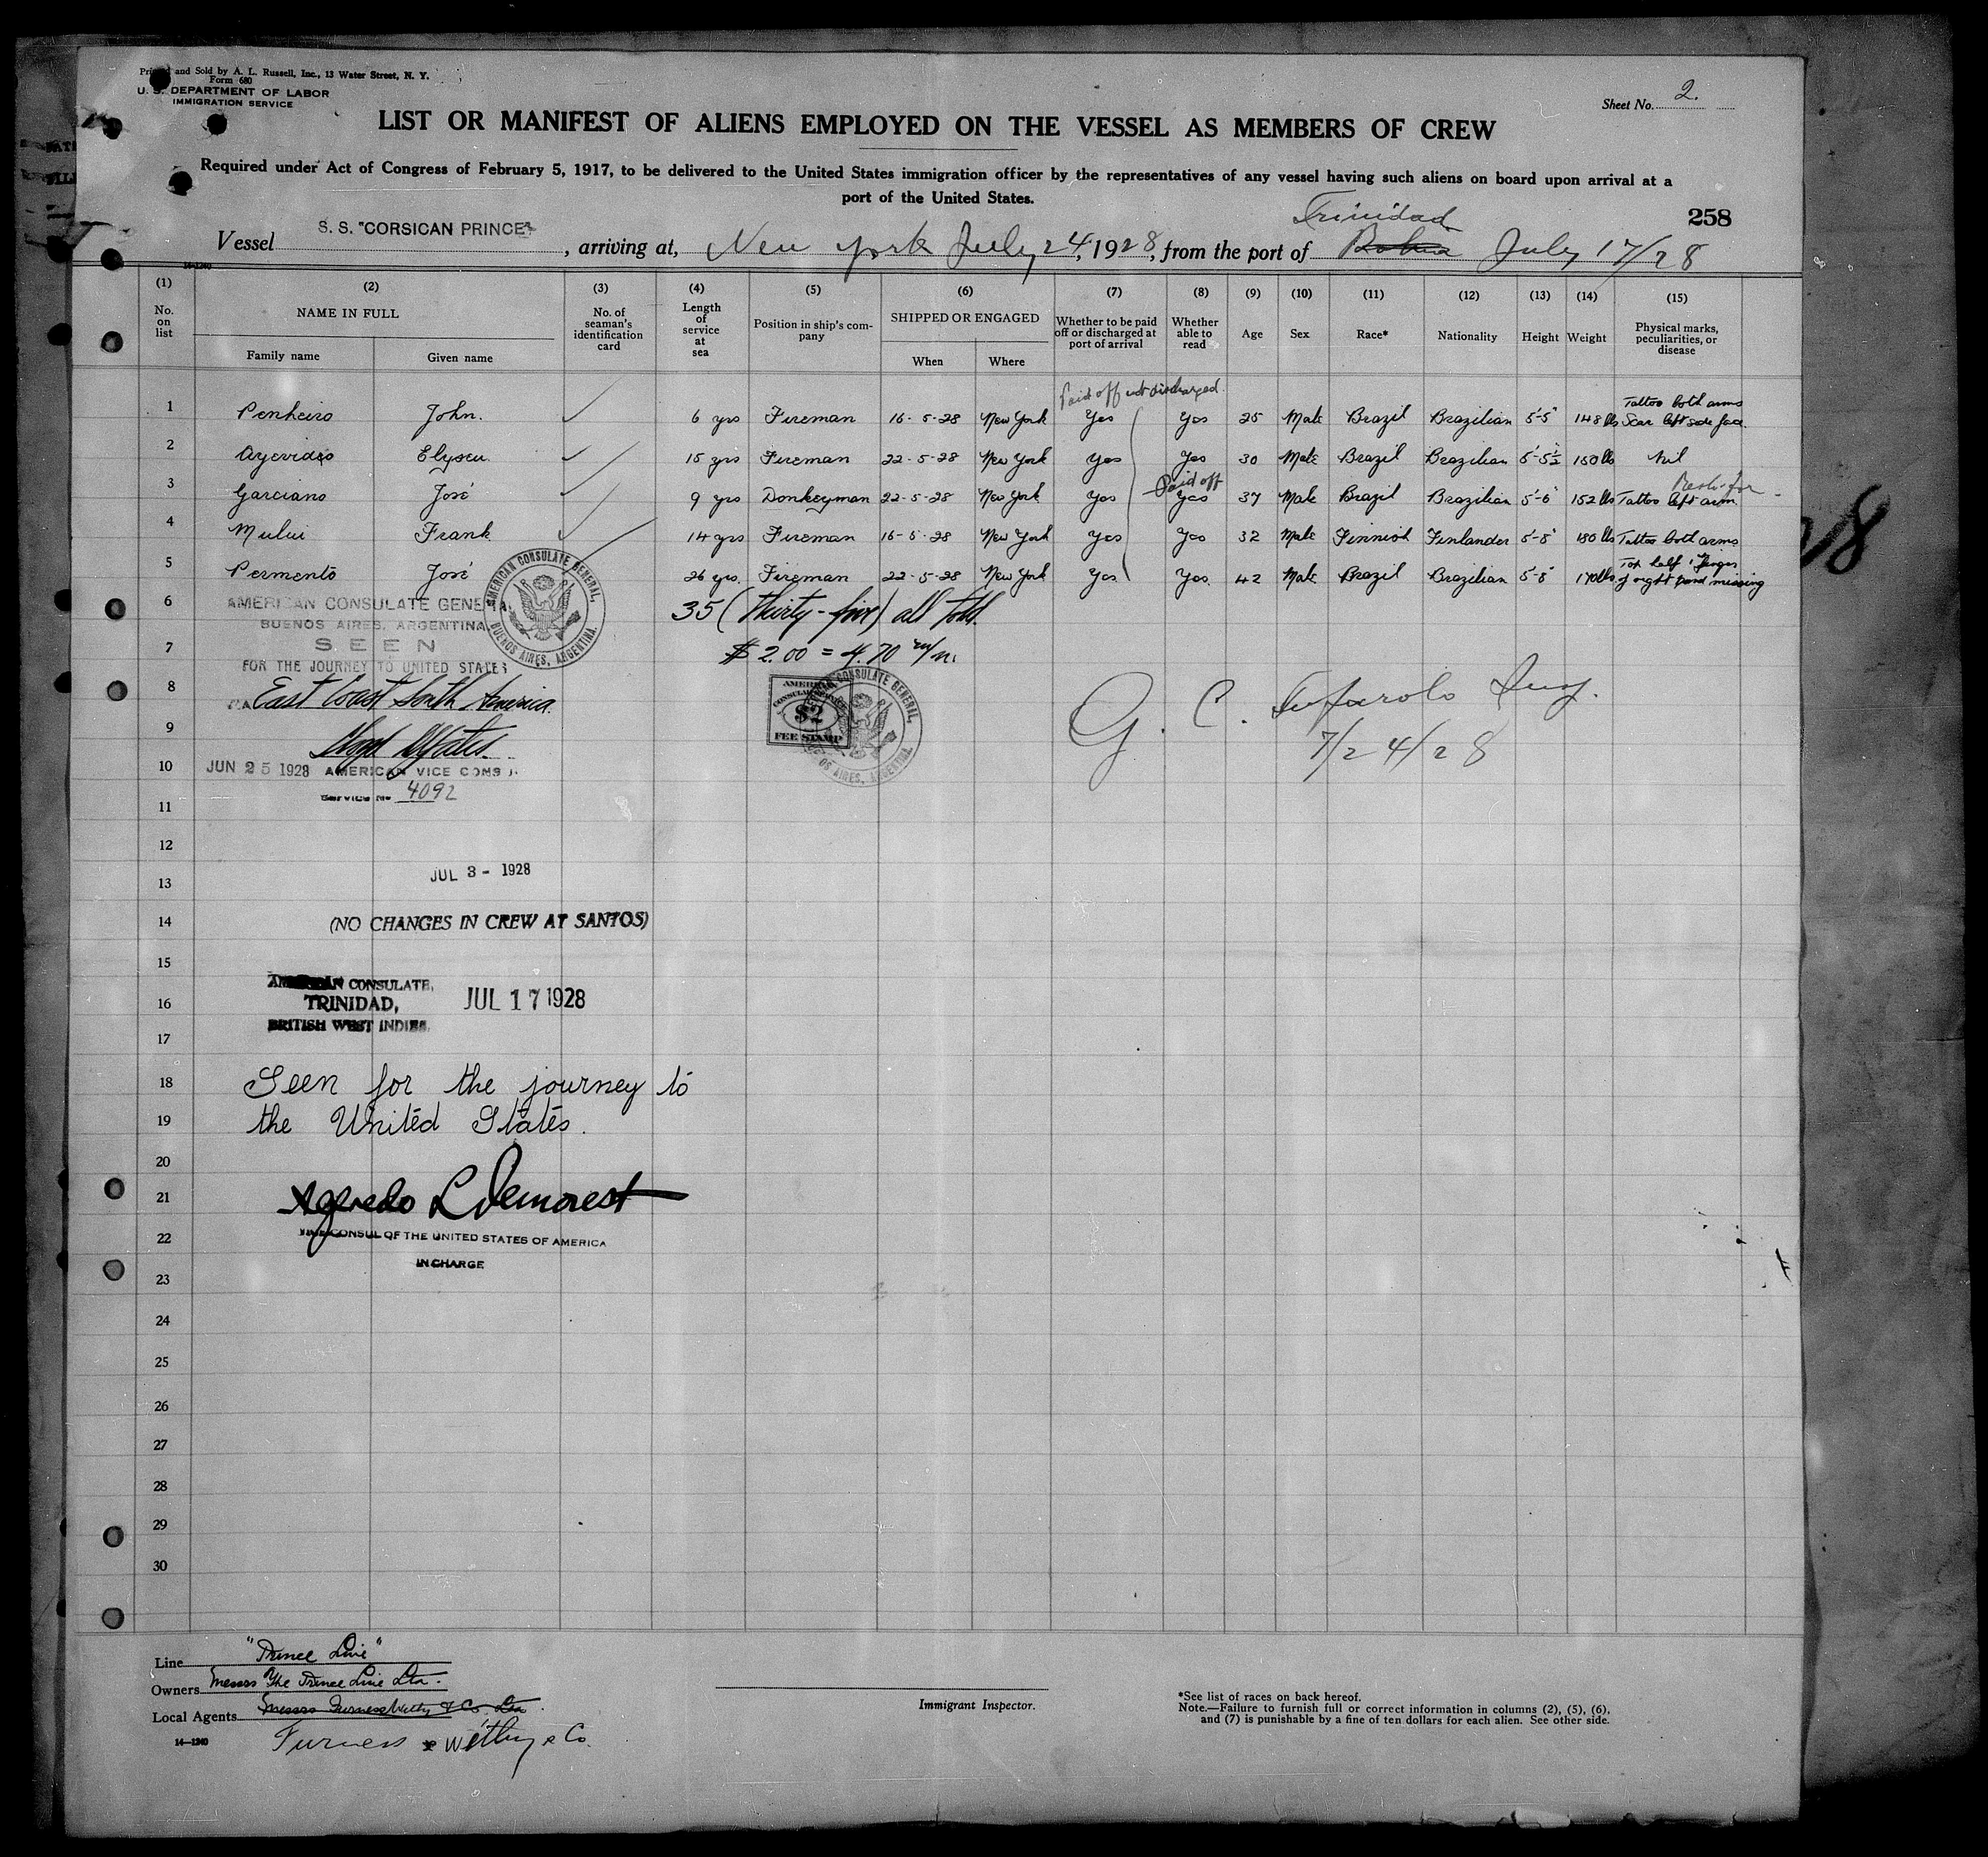 Printed and Sold by A. L. Russell, Inc., 13 Water Street, N. Y.
Form 680
U. S. DEPARTMENT OF LABOR
IMMIGRATION SERVICE
Sheet No. 2.
LIST OR MANIFEST OF ALIENS EMPLOYED ON THE VESSEL AS MEMBERS OF CREW
Required under Act of Congress of February 5, 1917, to be delivered to the United States immigration officer by the representatives of any vessel having such aliens on board upon arrival at a
port of the United States.
258
Trinidad
Vessel S. S. "CORSICAN PRINCE", arriving at, New York July 24, 1928, from the port of Bahia July 17/28
14-1240
(1) (2) (3) (4) (5) (6) (7) (8) (9) (10) (11) (12) (13) (14) (15)
No. on list
NAME IN FULL
Family name
Given name
No. of seaman's identification card
Length of service at sea
Position in ship's company
SHIPPED OR ENGAGED
When
Where
Whether to be paid off or discharged at port of arrival
Whether able to read
Age
Sex
Race*
Nationality
Height
Weight
Physical marks, peculiarities, or disease
Paid off not discharged
1 Penheiro John. 6 yrs Fireman 16-5-28 New York Yes Yes 25 Male Brazil Brazilian 5'-5" 148 lbs Tattoo both arms Scar left side face
2 Elyseu 15 yrs Fireman 22-5-28 New York Yes Yes 30 Male Brazil Brazilian 5'-5½ 150 lbs Nil
Paid off
3 Garciano José 9 yrs Donkeyman 22-5-28 New York Yes Yes 37 Male Brazil Brazilian 5'-6" 152 lbs Tattoo left arm
4 Frank 14 yrs Fireman 16-5-28 New York Yes Yes 32 Male Finnish Finlander 5'-8" 180 lbs Tattoo both arms
5 Permento José 26 yrs. Fireman 22-5-28 New York Yes Yes. 42 Male Brazil Brazilian 5'-8" 170 lbs Top half 1 finger of right hand missing
6
7
8
9
10
11
12
13
14
15
16
17
18
19
20
21
22
23
24
25
26
27
28
29
30
AMERICAN CONSULATE GENERAL
BUENOS AIRES, ARGENTINA
SEEN
FOR THE JOURNEY TO UNITED STATES
East Coast South America
JUN 25 1928 AMERICAN VICE CONSUL
Service No 4092
AMERICAN CONSULATE GENERAL, BUENOS AIRES, ARGENTINA.
35 (thirty-five) all told.
$ 2.00 = 4.70 m/n.
AMERICAN
CONSULAR SERVICE
$2
FEE STAMP
AMERICAN CONSULATE GENERAL, BUENOS AIRES, ARGENTINA.
G. C.
7/24/28
JUL 3 - 1928
(NO CHANGES IN CREW AT SANTOS)
AMERICAN CONSULATE,
TRINIDAD,
BRITISH WEST INDIES.
JUL 17 1928
Seen for the journey to
the United States.
Alfredo L Demorest
VICE CONSUL OF THE UNITED STATES OF AMERICA
IN CHARGE
Line "Prince Line"
Owners Messrs The Prince Line Ltd.
Local Agents Messrs Furness Withy & Co. Ltd.
Furness & Withy & Co.
14-1240
Immigrant Inspector.
*See list of races on back hereof.
Note.—Failure to furnish full or correct information in columns (2), (5), (6),
and (7) is punishable by a fine of ten dollars for each alien. See other side.